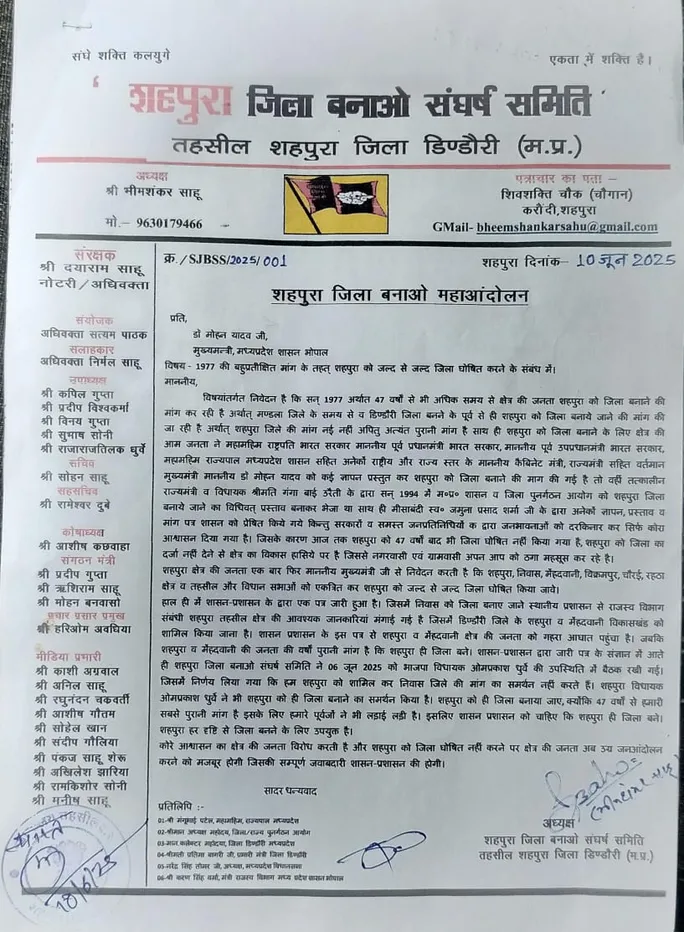 संघे शक्ति कलयुगे
एकता में शक्ति है।
शहपुरा जिला बनाओ संघर्ष समिति
तहसील शहपुरा जिला डिण्डौरी (म.प्र.)
अध्यक्ष
श्री भीमशंकर साहू
मो.– 9630179466
पत्राचार का पता –
शिवशक्ति चौक (चौगान)
करौंदी,शहपुरा
GMail- bheemshankarsahu@gmail.com
संरक्षक
श्री दयाराम साहू
नोटरी/अधिवक्ता
संयोजक
अधिवक्ता सत्यम पाठक
सलाहकार
अधिवक्ता निर्मल साहू
उपाध्यक्ष
श्री कपिल गुप्ता
श्री प्रदीप विश्वकर्मा
श्री विनय गुप्ता
श्री सुभाष सोनी
श्री राजाराजतिलक धुर्वे
सचिव
श्री सोहन साहू
सहसचिव
श्री रामेश्वर दुबे
कोषाध्यक्ष
श्री आशीष कछवाहा
संगठन मंत्री
श्री प्रदीप गुप्ता
श्री ऋशिराम साहू
श्री मोहन बनवासी
प्रचार प्रसार प्रमुख
श्री हरिओम अवधिया
मीडिया प्रभारी
श्री काशी अग्रवाल
श्री अनिल साहू
श्री रघुनंदन चकवर्ती
श्री आशीष गौतम
श्री सोहेल खान
श्री संदीप गौलिया
श्री पंकज साहू शेरू
श्री अखिलेश झारिया
श्री रामकिशोर सोनी
श्री मनीष साहू
क्र./SJBSS/2025/001
शहपुरा दिनांक– 10 जून 2025
शहपुरा जिला बनाओ महाआंदोलन
प्रति,
डॉ मोहन यादव जी,
मुख्यमन्त्री, मध्यप्रदेश शासन भोपाल
विषय - 1977 की बहुप्रतीक्षित मांग के तहत् शहपुरा को जल्द से जल्द जिला घोषित करने के संबंध में।
माननीय,
विषयांतर्गत निवेदन है कि सन् 1977 अर्थात 47 वर्षो से भी अधिक समय से क्षेत्र की जनता शहपुरा को जिला बनाने की
मांग कर रही है अर्थात् मण्डला जिले के समय से व डिण्डौरी जिला बनने के पूर्व से ही शहपुरा को जिला बनाये जाने की मांग की
जा रही है अर्थात शहपुरा जिले की मांग नई नहीं अपितु अत्यंत पुरानी मांग है साथ ही शहपुरा को जिला बनाने के लिए क्षेत्र की
आम जनता ने महामहिम राष्ट्रपति भारत सरकार माननीय पूर्व प्रधानमंत्री भारत सरकार, माननीय पूर्व उपप्रधानमंत्री भारत सरकार,
महामहिम राज्यपाल मध्यप्रदेश शासन सहित अनेकों राष्ट्रीय और राज्य स्तर के माननीय कैबिनेट मंत्री, राज्यमंत्री सहित वर्तमान
मुख्यमंत्री माननीय डॉ मोहन यादव को कई ज्ञापन प्रस्तुत कर शहपुरा को जिला बनाने की माग की गई है तो वहीं तत्कालीन
राज्यमंत्री व विधायक श्रीमति गंगा बाई उरैती के द्वारा सन् 1994 में म०प्र० शासन व जिला पुनर्गठन आयोग को शहपुरा जिला
बनाये जाने का विधिवत् प्रस्ताव बनाकर भेजा था साथ ही मीसाबंदी स्व० जमुना प्रसाद शर्मा जी के द्वारा अनेकों ज्ञापन, प्रस्ताव व
मांग पत्र शासन को प्रेषित किये गये किन्तु सरकारों व समस्त जनप्रतिनिधियों क द्वारा जनभावनाओं को दरकिनार कर सिर्फ कोरा
आश्वासन दिया गया है। जिसके कारण आज तक शहपुरा को 47 वर्षों बाद भी जिला घोषित नहीं किया गया है, शहपुरा को जिला का
दर्जा नहीं देने से क्षेत्र का विकास हासिये पर है जिससे नगरवासी एवं ग्रामवासी अपन आप को ठगा महसूस कर रहे है।
शहपुरा क्षेत्र की जनता एक बार फिर माननीय मुख्यमंत्री जी से निवेदन करती है कि शहपुरा, निवास, मेंहदवानी, विक्रमपुर, चौरई, रहठा
क्षेत्र व तहसील और विधान सभाओं को एकत्रित कर शहपुरा को जल्द से जल्द जिला घोषित किया जावे।
हाल ही में शासन-प्रशासन के द्वारा एक पत्र जारी हुआ है। जिसमें निवास को जिला बनाए जाने स्थानीय प्रशासन से राजस्व विभाग
संबंधी शहपुरा तहसील क्षेत्र की आवश्यक जानकारियां मंगाई गई है जिसमें डिण्डौरी जिले के शहपुरा व मेंहदवानी विकासखंड को
शामिल किया जाना है। शासन प्रशासन के इस पत्र से शहपुरा व मेंहदवानी क्षेत्र की जनता को गहरा आघात पहुंचा है। जबकि
शहपुरा व मेंहदवानी की जनता की वर्षों पुरानी मांग है कि शहपुरा ही जिला बने। शासन-प्रशासन द्वारा जारी पत्र के संज्ञान में आते
ही शहपुरा जिला बनाओ संघर्ष समिति ने 06 जून 2025 को भाजपा विधायक ओमप्रकाश धुर्वे की उपस्थिति में बैठक रखी गई।
जिसमें निर्णय लिया गया कि हम शहपुरा को शामिल कर निवास जिले की मांग का समर्थन नहीं करते हैं। शहपुरा विधायक
ओमप्रकाश धुर्वे ने भी शहपुरा को ही जिला बनाने का समर्थन किया है। शहपुरा को ही जिला बनाया जाए, क्योंकि 47 वर्षों से हमारी
सबसे पुरानी मांग है इसके लिए हमारे पूर्वजों ने भी लडाई लडी है। इसलिए शासन प्रशासन को चाहिए कि शहपुरा ही जिला बने।
शहपुरा हर दृष्टि से जिला बनने के लिए उपयुक्त है।
कोरे आश्वासन का क्षेत्र की जनता विरोध करती है और शहपुरा को जिला घोषित नहीं करने पर क्षेत्र की जनता अब उग्र जनआंदोलन
करने को मजबूर होगी जिसकी सम्पूर्ण जवाबदारी शासन-प्रशासन की होगी।
सादर धन्यवाद
प्रतिलिपि :-
01-श्री मंगुभाई पटेल, महामहिम, राज्यपाल मध्यप्रदेश
02-श्रीमान अध्यक्ष महोदय, जिला/राज्य पुनर्गठन आयोग
03-मान.कलेक्टर महोदया, जिला डिण्डौरी मध्यप्रदेश
04-श्रीमती प्रतिमा बागरी जी, प्रभारी मंत्री जिला डिण्डौरी
05-नरेंद्र सिंह तोमर जी, अध्यक्ष, मध्यप्रदेश विधानसभा
06-श्री करण सिंह वर्मा, मंत्री राजस्व विभाग मध्य प्रदेश शासन भोपाल
अध्यक्ष
शहपुरा जिला बनाओ संघर्ष समिति
तहसील शहपुरा जिला डिण्डौरी (म.प्र.)